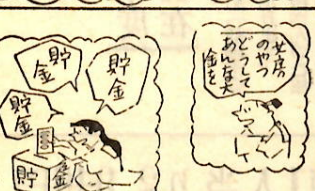 女房
のやつ
どうして
あんな大
金を
貯金
貯金
貯金
貯金